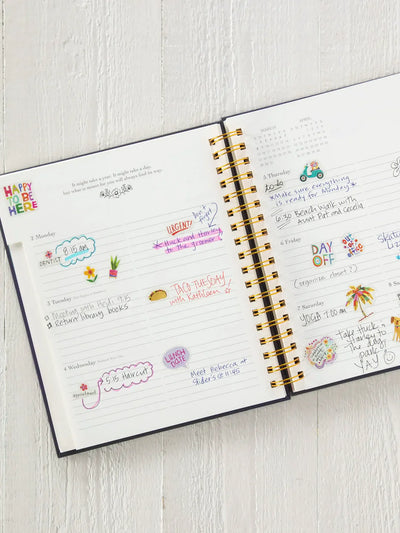 HAPPY
TO BE
HERE
It might take a year. It might take a day,
but what is meant for you will always find its way.
2 Monday
DENTIST
8:15 AM
URGENT!
don't
forget
Huck and Henley
to the groomer
3 Tuesday
Meeting with Heidi 9:15
Return library books
TACO TUESDAY
with Kathleen
4 Wednesday
appointment
5:15 Haircut
LUNCH
DATE
Meet Rebecca at
Slider's @ 11:45
MARCH
APRIL
5 Thursday
to do
Make sure everything
is ready for Monday
6:30 Beach Walk with
Aunt Pat and Cecelia
6 Friday
DAY
OFF
(organize closet?)
7 Saturday
YOGA 7:00 AM
Take Huck
Henley to
the dog
park
YAY